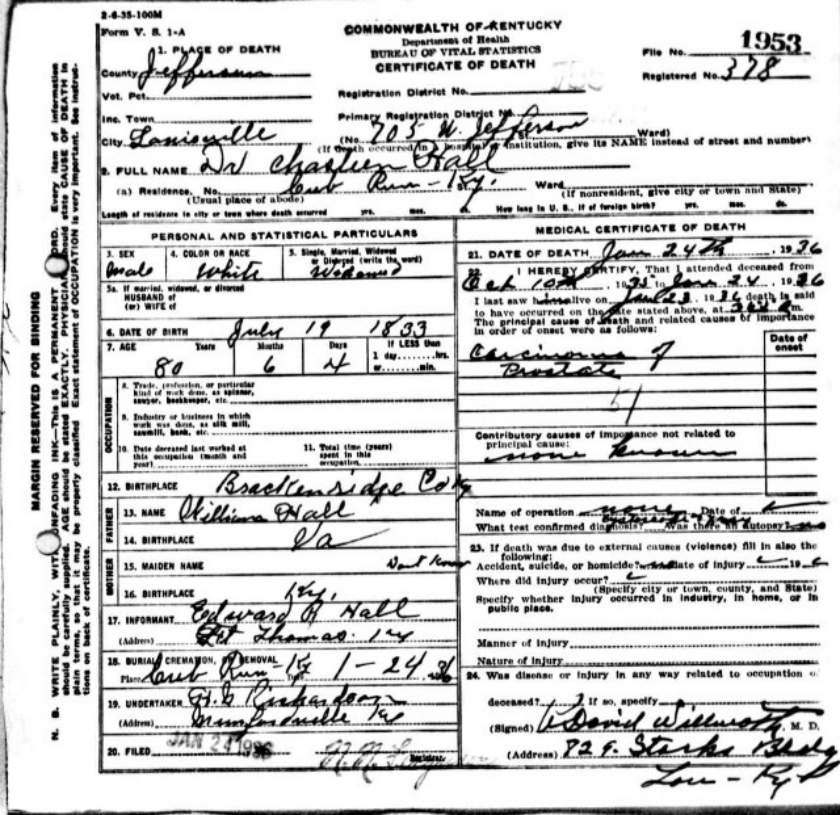 2-6-35-100M
Form V. S. 1-A
COMMONWEALTH OF KENTUCKY
Department of Health
BUREAU OF VITAL STATISTICS
CERTIFICATE OF DEATH
File No. 1953
Registered No. 378
1. PLACE OF DEATH
County Jefferson
Vot. Pct.
Inc. Town
City Louisville
Registration District No.
Primary Registration District No.
(No. 705 W. Jefferson Ward)
(If death occurred in a hospital or institution, give its NAME instead of street and number)
2. FULL NAME Dr Chastien Hall
(a) Residence. No. Cub Run - Ky. St., Ward
(Usual place of abode) (If nonresident, give city or town and State)
Length of residence in city or town where death occurred yrs. mos. ds. How long in U. S., if of foreign birth? yrs. mos. ds.
PERSONAL AND STATISTICAL PARTICULARS
3. SEX Male
4. COLOR OR RACE White
5. Single, Married, Widowed or Divorced (write the word) Widowed
5a. If married, widowed, or divorced
HUSBAND of
(or) WIFE of
6. DATE OF BIRTH July 19 1833
7. AGE Years Months Days If LESS than
1 day......hrs.
or......min.
80 6 4
OCCUPATION
8. Trade, profession, or particular
kind of work done, as spinner,
sawyer, bookkeeper, etc.
9. Industry or business in which
work was done, as silk mill,
sawmill, bank, etc.
10. Date deceased last worked at
this occupation (month and
year)
11. Total time (years)
spent in this
occupation
12. BIRTHPLACE Brackenridge Co Ky
FATHER
13. NAME William Hall
14. BIRTHPLACE Va
MOTHER
15. MAIDEN NAME Dont Know
16. BIRTHPLACE Ky.
17. INFORMANT Edward R Hall
(Address) Ft Thomas Ky
18. BURIAL, CREMATION, REMOVAL
Place Cub Run - Ky 1-24 36
19. UNDERTAKER Richardson
(Address) Munfordville Ky
20. FILED JAN 24 1936
Registrar
MEDICAL CERTIFICATE OF DEATH
21. DATE OF DEATH Jan 24th, 1936
22. I HEREBY CERTIFY, That I attended deceased from
Oct 10th, 1935 to Jan 24, 1936
I last saw him alive on Jan 23, 1936 death is said
to have occurred on the date stated above, at m.
The principal cause of death and related causes of importance
in order of onset were as follows:
Date of
onset
Carcinoma of
Prostate
51
Contributory causes of importance not related to
principal cause:
none known
Name of operation none Date of
What test confirmed diagnosis? Was there an autopsy? no
23. If death was due to external causes (violence) fill in also the
following:
Accident, suicide, or homicide? Date of injury 19
Where did injury occur?
(Specify city or town, county, and State)
Specify whether injury occurred in industry, in home, or in
public place.
Manner of injury
Nature of injury
24. Was disease or injury in any way related to occupation of
deceased? If so, specify
(Signed) David Willworth, M. D.
(Address) 829 Starks Bldg
Lou - Ky
MARGIN RESERVED FOR BINDING
N. B. WRITE PLAINLY, WITH UNFADING INK—This is A PERMANENT RECORD. Every item of information
should be carefully supplied. AGE should be stated EXACTLY. PHYSICIANS should state CAUSE OF DEATH in
plain terms, so that it may be properly classified. Exact statement of OCCUPATION is very important. See instruc-
tions on back of certificate.